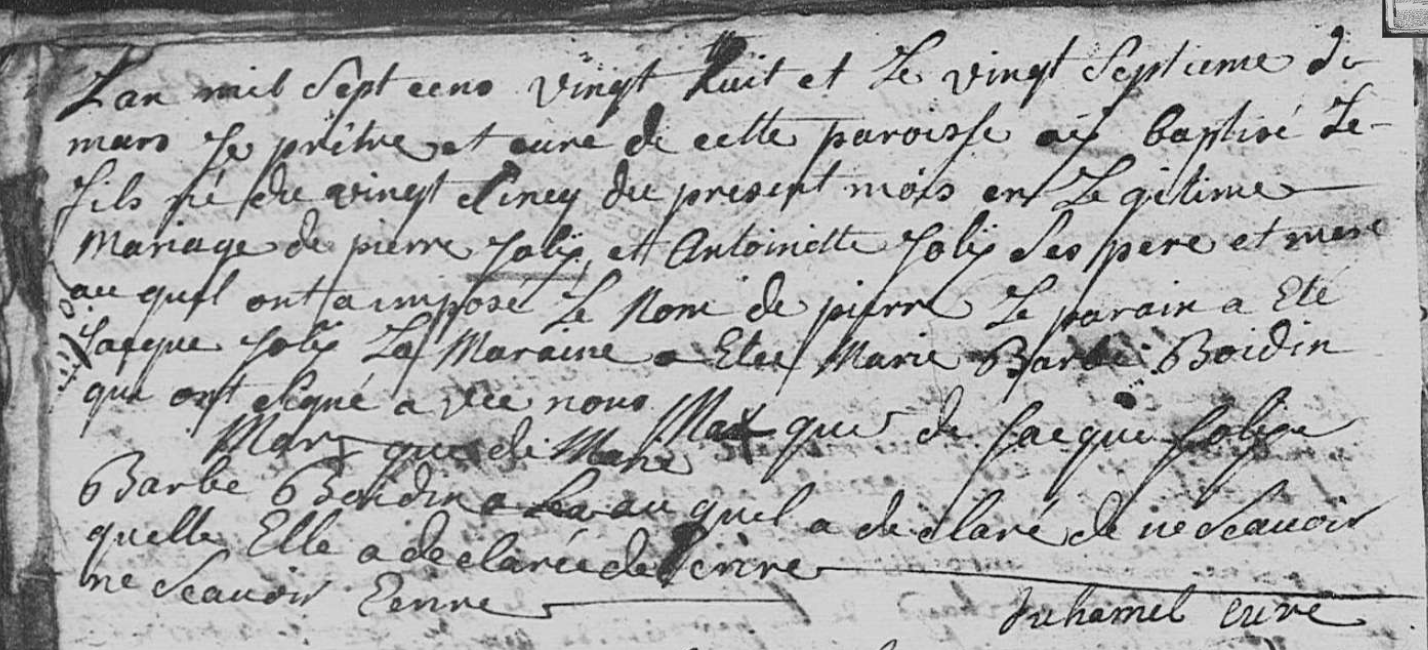 L'an mil Sept cens vingt huit et Le vingt Septieme de
mars Je prêtre et curé de cette paroisse aÿ baptisé Le
fils né du vingt Cincq du present mois en Le gitime
Mariage de pierre Joliÿ et Antoinette Joliÿ Ses pere et mere
au quel ont a imposé Le Nom de pierre Le parain a Eté
Jacque Joliÿ La Maraine a Etee Marie Barbe Boidin
qui ont Signé a vec nous
Marque de Jacque Joliÿ
Marque de Marie
Barbe Boidin a La au quel a declaré de ne Scauoir
quelle Elle a declarée de Ecrire
ne Scauoir Ecrire
Duhamel curé